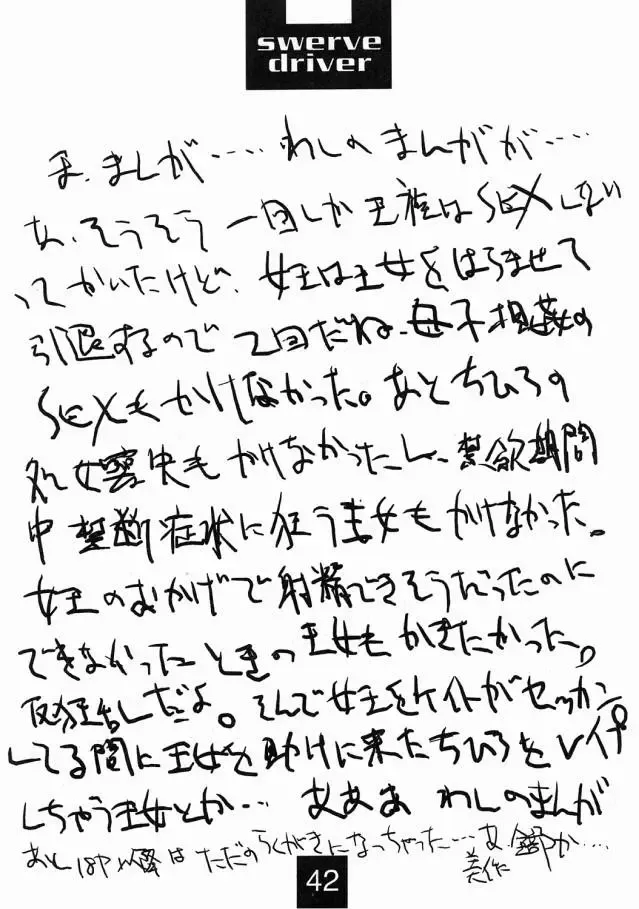 swerve
driver
ま、ましが‥‥ わしの まんがが‥‥
あ、そうそう 一回しか 王族は SEXしない
ってかいたけど、女王は王女をはらませて
引退するので 2回だね、母子相姦の
SEXもかけなかった。あと ちひろの
処女喪失も かけなかったし、禁欲期間
中 禁断症状に狂う王女もかけなかった。
女王のおかげで射精できそうだったのに
できなかったときの王女も かきたかった。
だよ。そんで女王をケイトがセッカン
してる間に王女を助けに来たちひろをレイプ
しちゃう王女とか‥‥ あああ わしのまんが
あと 以降は ただの らくがきになっちゃった‥‥あ
42